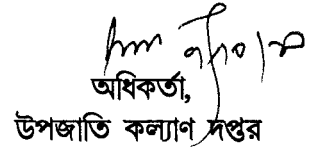 অধিকর্তা,
উপজাতি কল্যাণ দপ্তর